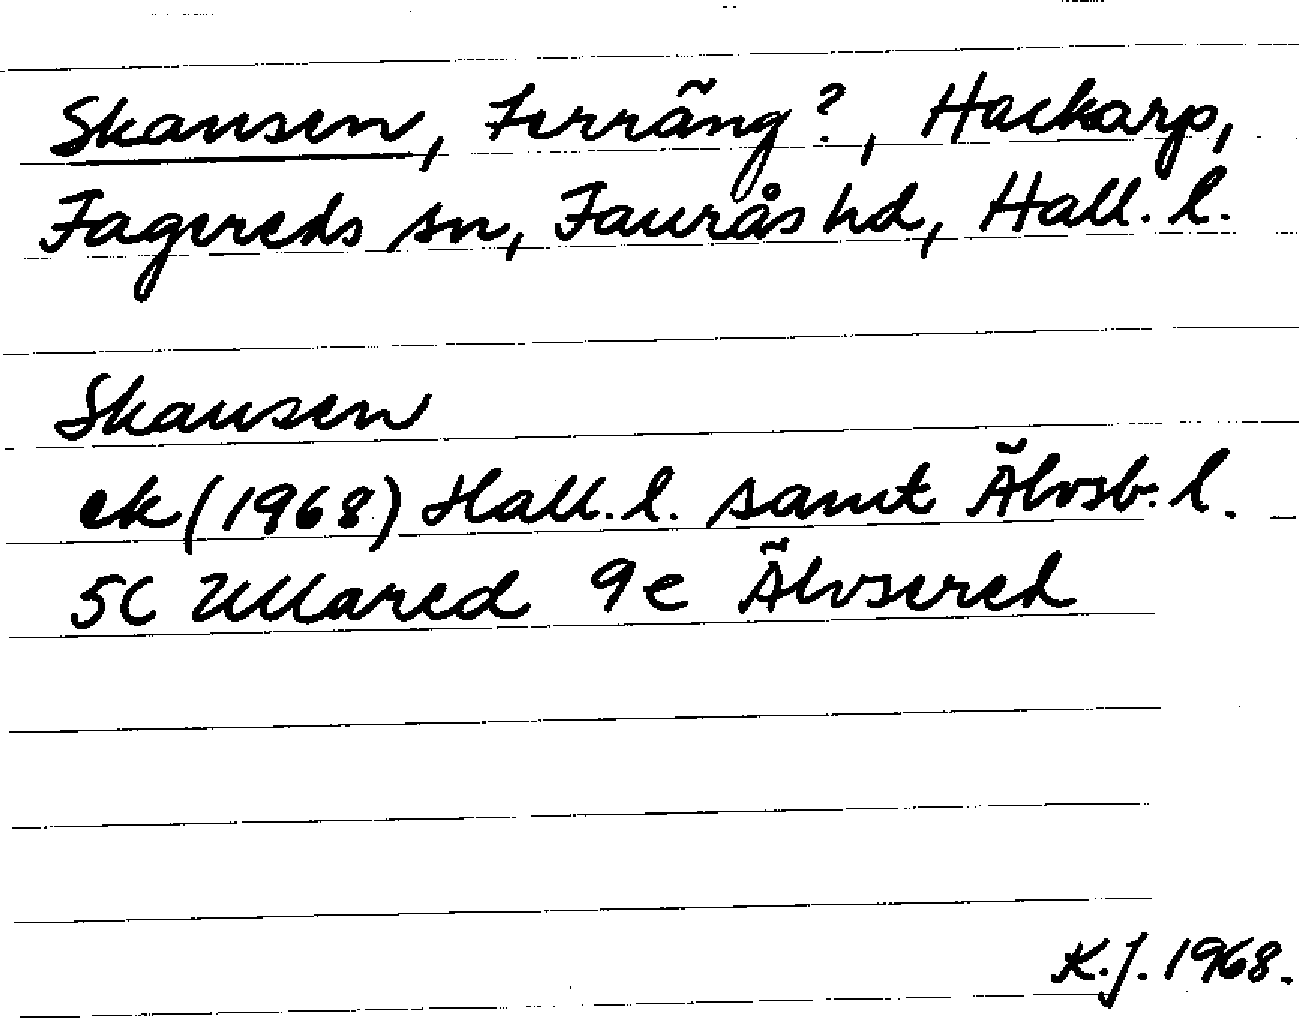 Skansen, Terräng?, Hackarp,
Fagereds sn, Faurås hd, Hall. l.
Skansen
ek (1968) Hall. l. samt Älvsb. l.
5C Ullared 9e Älvsered
K.J. 1968.